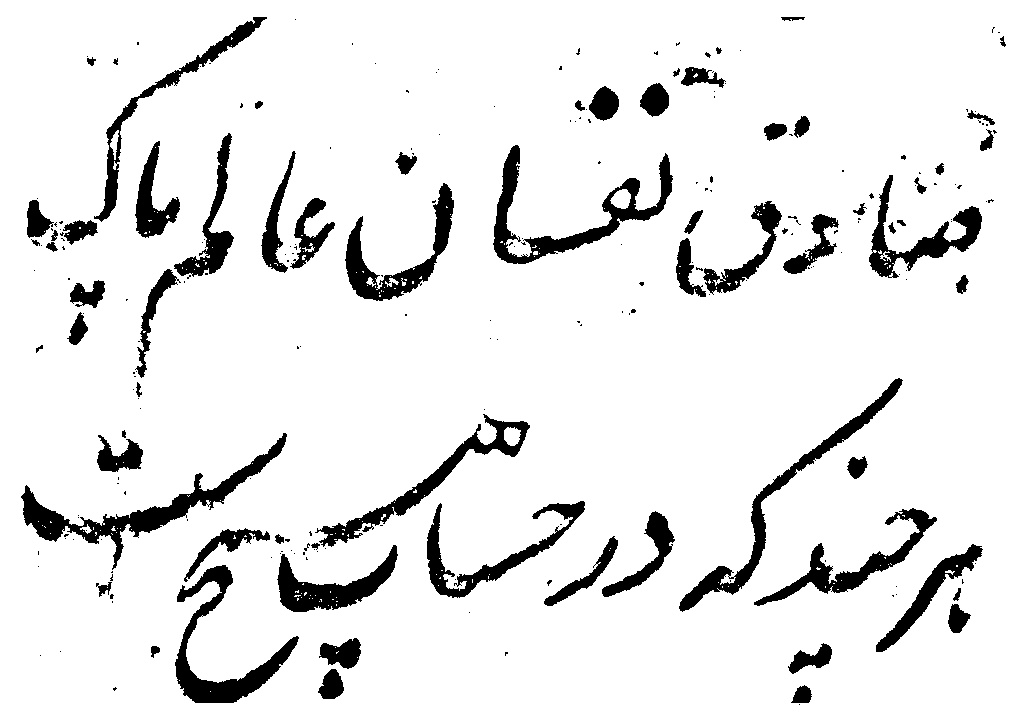 صادق نفسان عالم پاک
هر چند که در حساب هیچ است